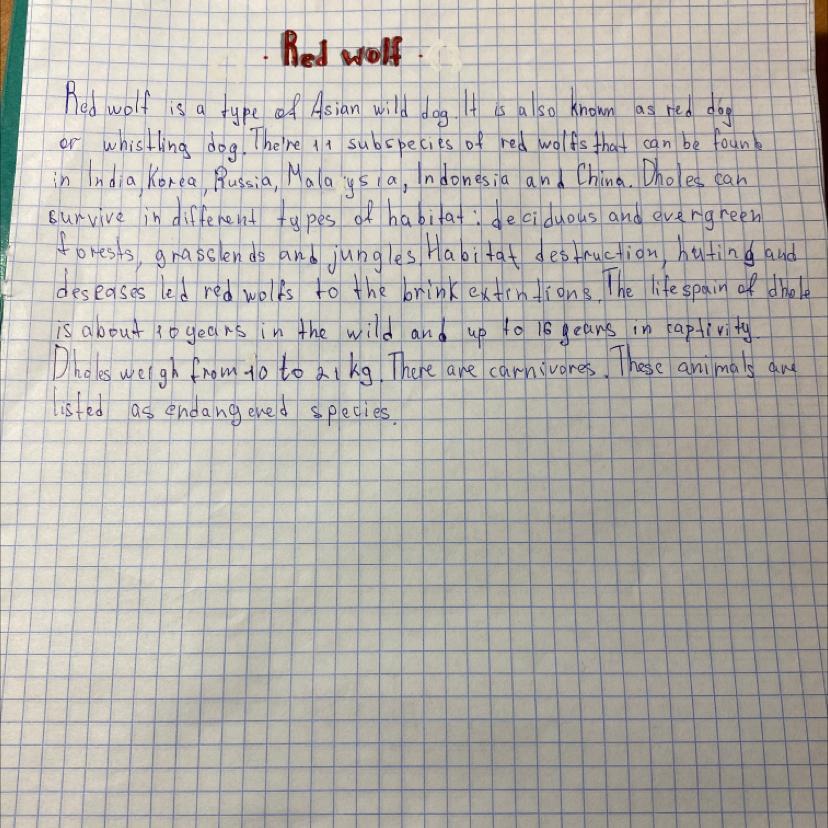 · Red wolf ·
Red wolf is a type of Asian wild dog. It is also known as red dog
or whistling dog. There 11 subspecies of red wolfs that can be founb
in India, Korea, Russia, Malaysia, Indonesia and China. Dholes can
survive in different types of habitat: deciduous and evergreen
forests, grasslends and jungles. Habitat destruction, huting and
deseases led red wolfs to the brink extintions. The lifespain of dhole
is about 10 years in the wild and up to 16 years in captivity.
Dholes weigh from 10 to 21 kg. There are carnivores. These animals are
listed as endangered species.